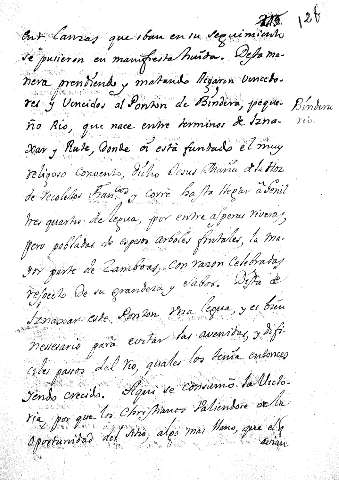 128
Cent lanzas que iban en su seguimiento
se pusieron en manifiesta huida. Desta ma
nera prendiendo y matando llegaron vencedo
res y Vencidos al Ponton de Bindera, peque
ño Rio, que nace entre terminos de Izna
xar y Rute, donde oi está fundado el muy
religioso Convento, dicho Jesus Maria de
de Recoletos Franc.cos y corre hasta llegar a Genil
tres quartos de legua, por entre asperas riveras,
pero pobladas de espesos arboles frutales, la ma
yor parte de Zamboas, con razon celebradas
respecto de su grandeza y sabor. Dista de
Iznaxar este Ponton una legua, y es bien
necesario para evitar las avenidas, y difi
ciles pasos del rio, quales los tenia entonces
yendo crecido. Aqui se consumó la Victo
ria, por que los Christianos Valiendose de la
oportunidad del Sitio, algo mas llano, que el q
avian
Bindera
rio